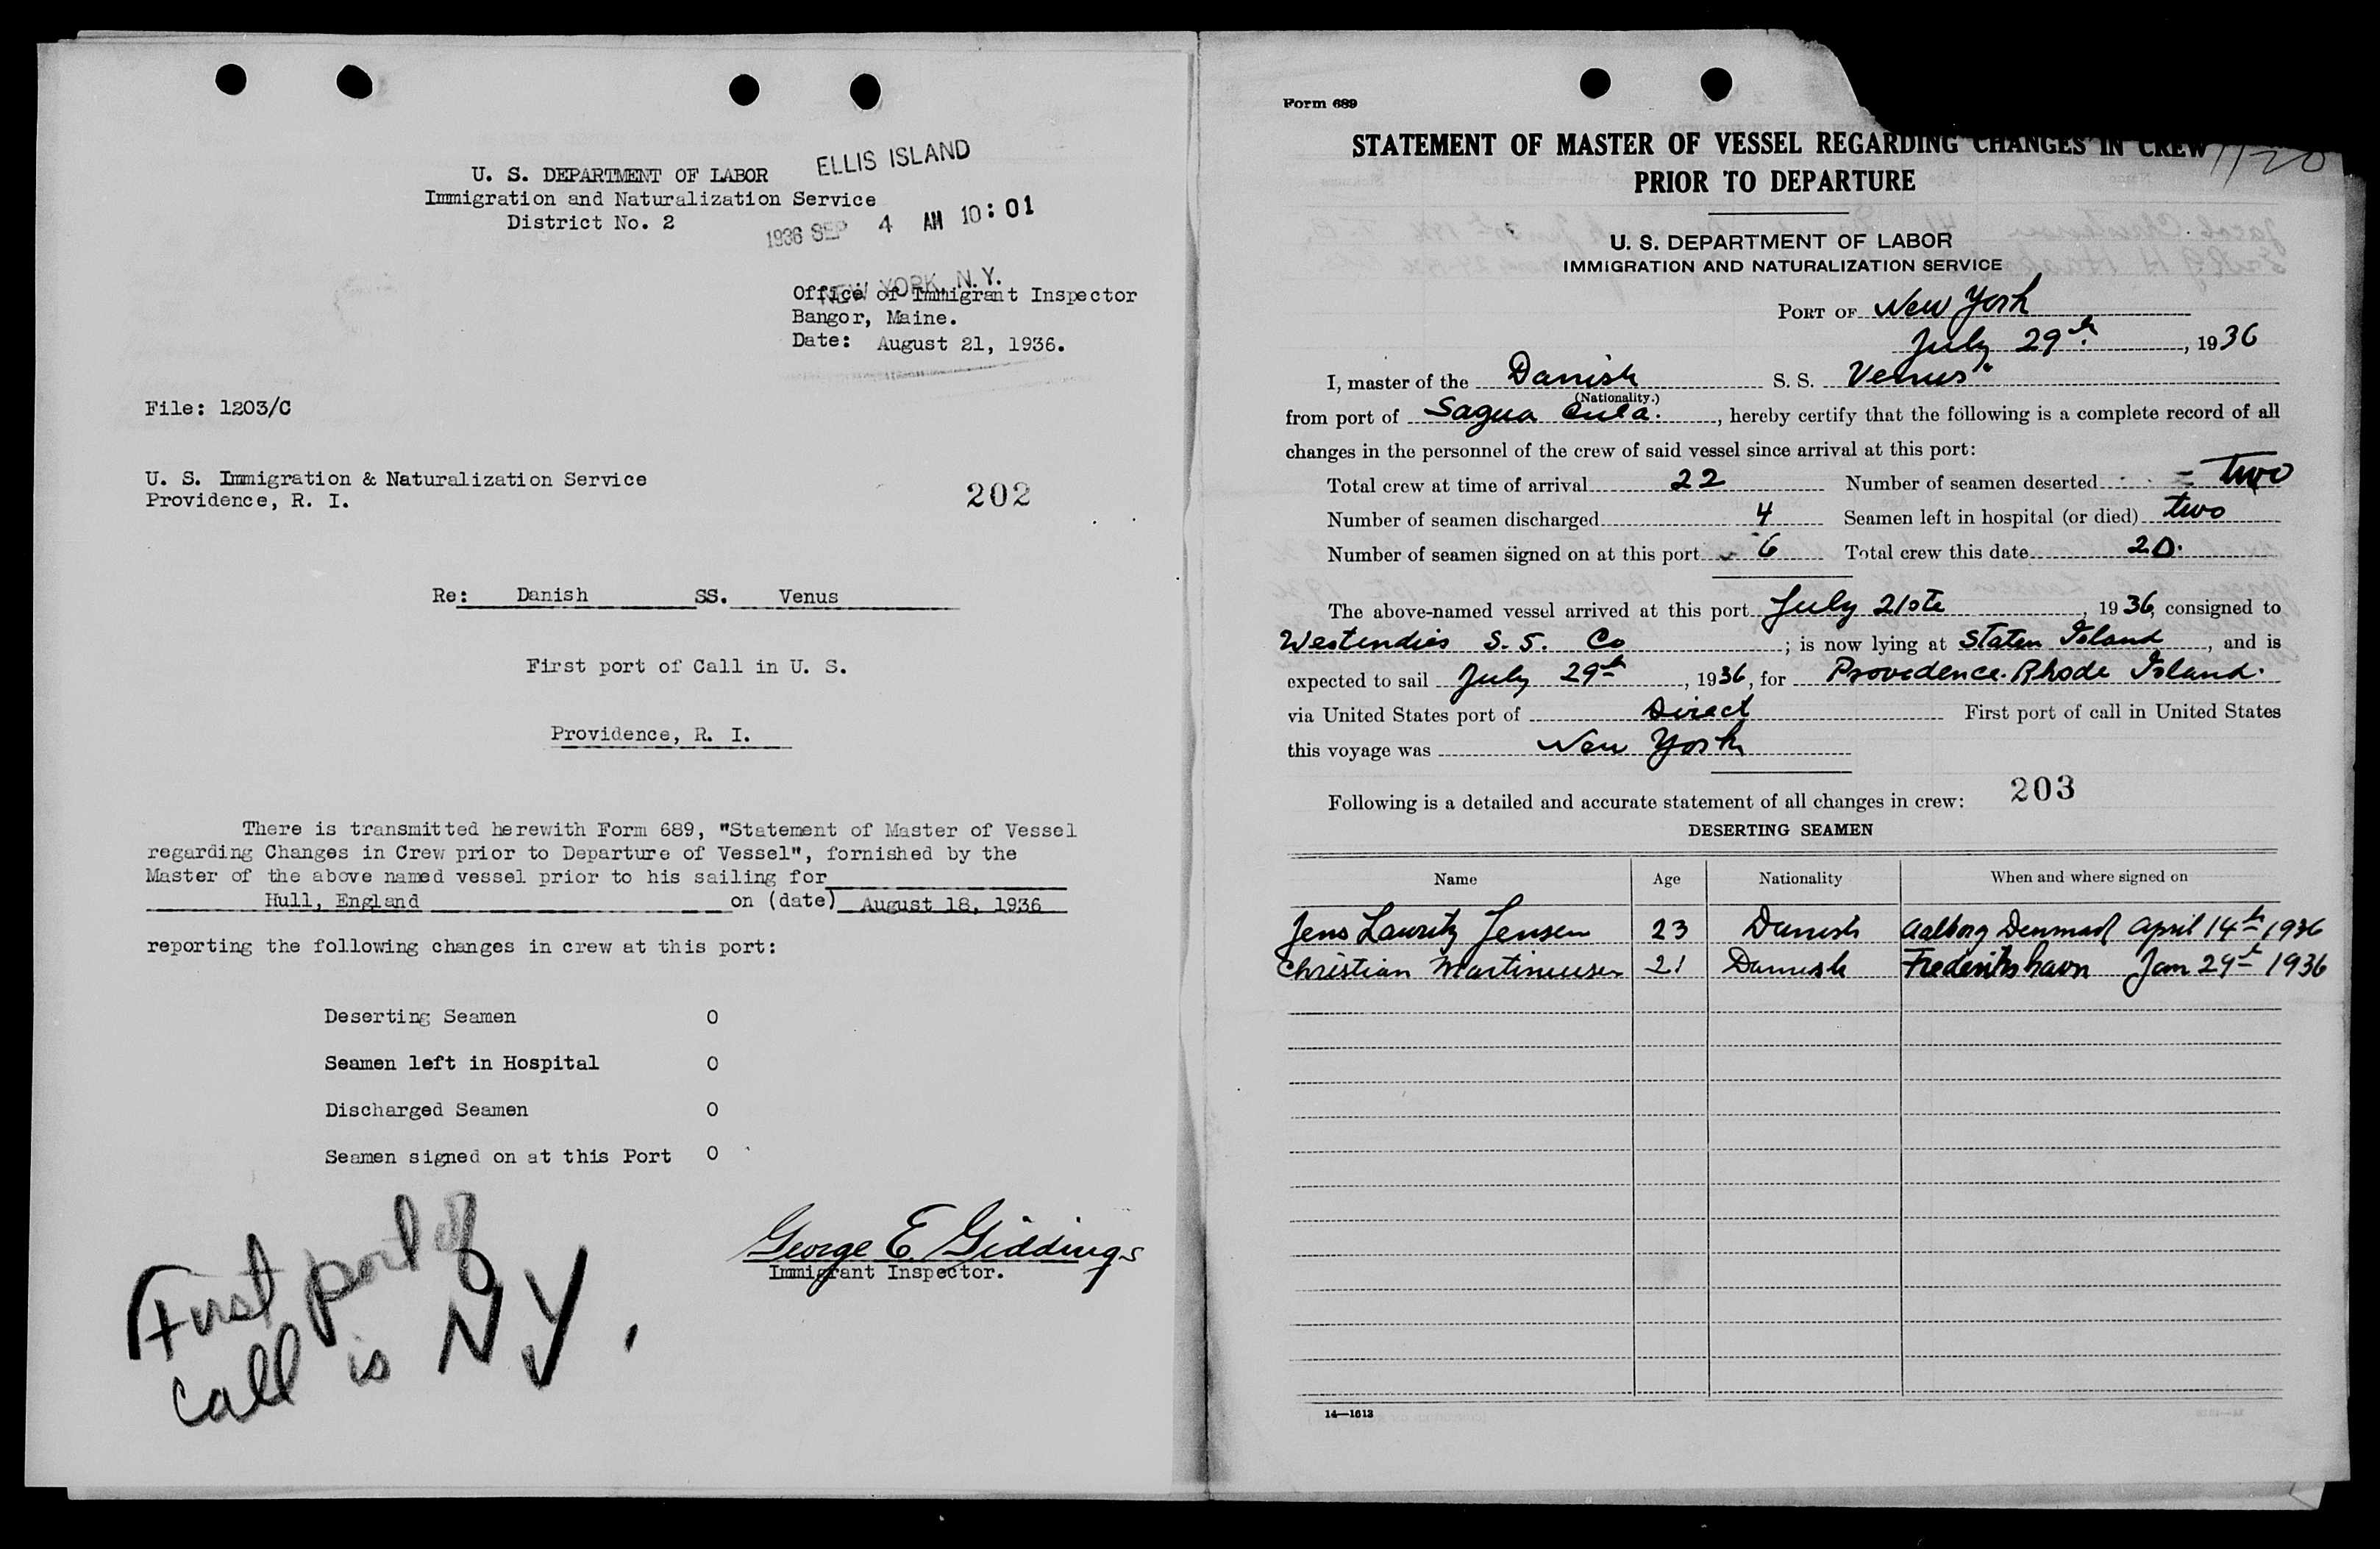 U. S. DEPARTMENT OF LABOR
Immigration and Naturalization Service
District No. 2
ELLIS ISLAND
1936 SEP 4 AM 10:01
NEW YORK, N.Y.
Office of Immigrant Inspector
Bangor, Maine.
Date: August 21, 1936.
File: 1203/C
U. S. Immigration & Naturalization Service
Providence, R. I.
202
Re: Danish SS. Venus
First port of Call in U. S.
Providence, R. I.
There is transmitted herewith Form 689, "Statement of Master of Vessel
regarding Changes in Crew prior to Departure of Vessel", fornished by the
Master of the above named vessel prior to his sailing for
Hull, England on (date) August 18, 1936
reporting the following changes in crew at this port:
Deserting Seamen 0
Seamen left in Hospital 0
Discharged Seamen 0
Seamen signed on at this Port 0
George E. Giddings
Immigrant Inspector.
First port of
call is NY.
Form 689
STATEMENT OF MASTER OF VESSEL REGARDING CHANGES IN CREW
PRIOR TO DEPARTURE
U. S. DEPARTMENT OF LABOR
IMMIGRATION AND NATURALIZATION SERVICE
PORT OF New York
July 29th, 1936
I, master of the Danish S. S. Venus
(Nationality.)
from port of Sagua Cuba., hereby certify that the following is a complete record of all
changes in the personnel of the crew of said vessel since arrival at this port:
Total crew at time of arrival 22 Number of seamen deserted two
Number of seamen discharged 4 Seamen left in hospital (or died) two
Number of seamen signed on at this port 6 Total crew this date 20.
The above-named vessel arrived at this port July 21ste, 1936, consigned to
Westindies S. S. Co; is now lying at Staten Island, and is
expected to sail July 29th, 1936, for Providence. Rhode Island.
via United States port of Direct First port of call in United States
this voyage was New York
203
Following is a detailed and accurate statement of all changes in crew:
DESERTING SEAMEN
Name Age Nationality When and where signed on
Jens Lauritz Jensen 23 Danish Aalborg Denmark April 14th 1936
Christian Martinussen 21 Danish Frederikshavn Jan 29th 1936
14—1613